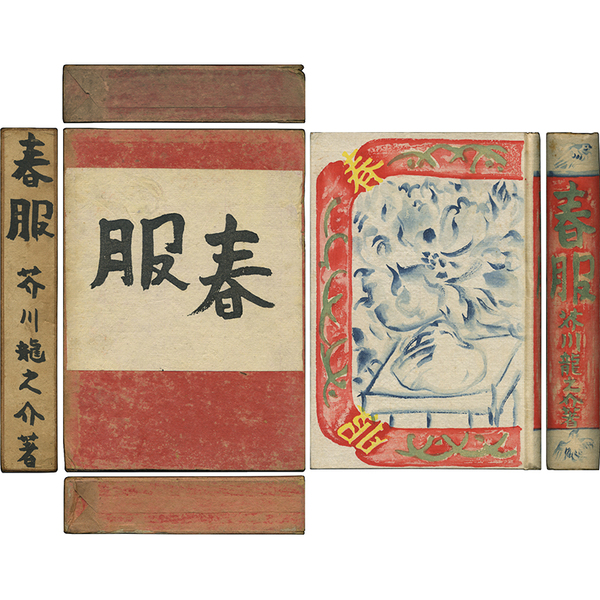 春服 芥川龍之介著
春服
春
服
春服 芥川龍之介著